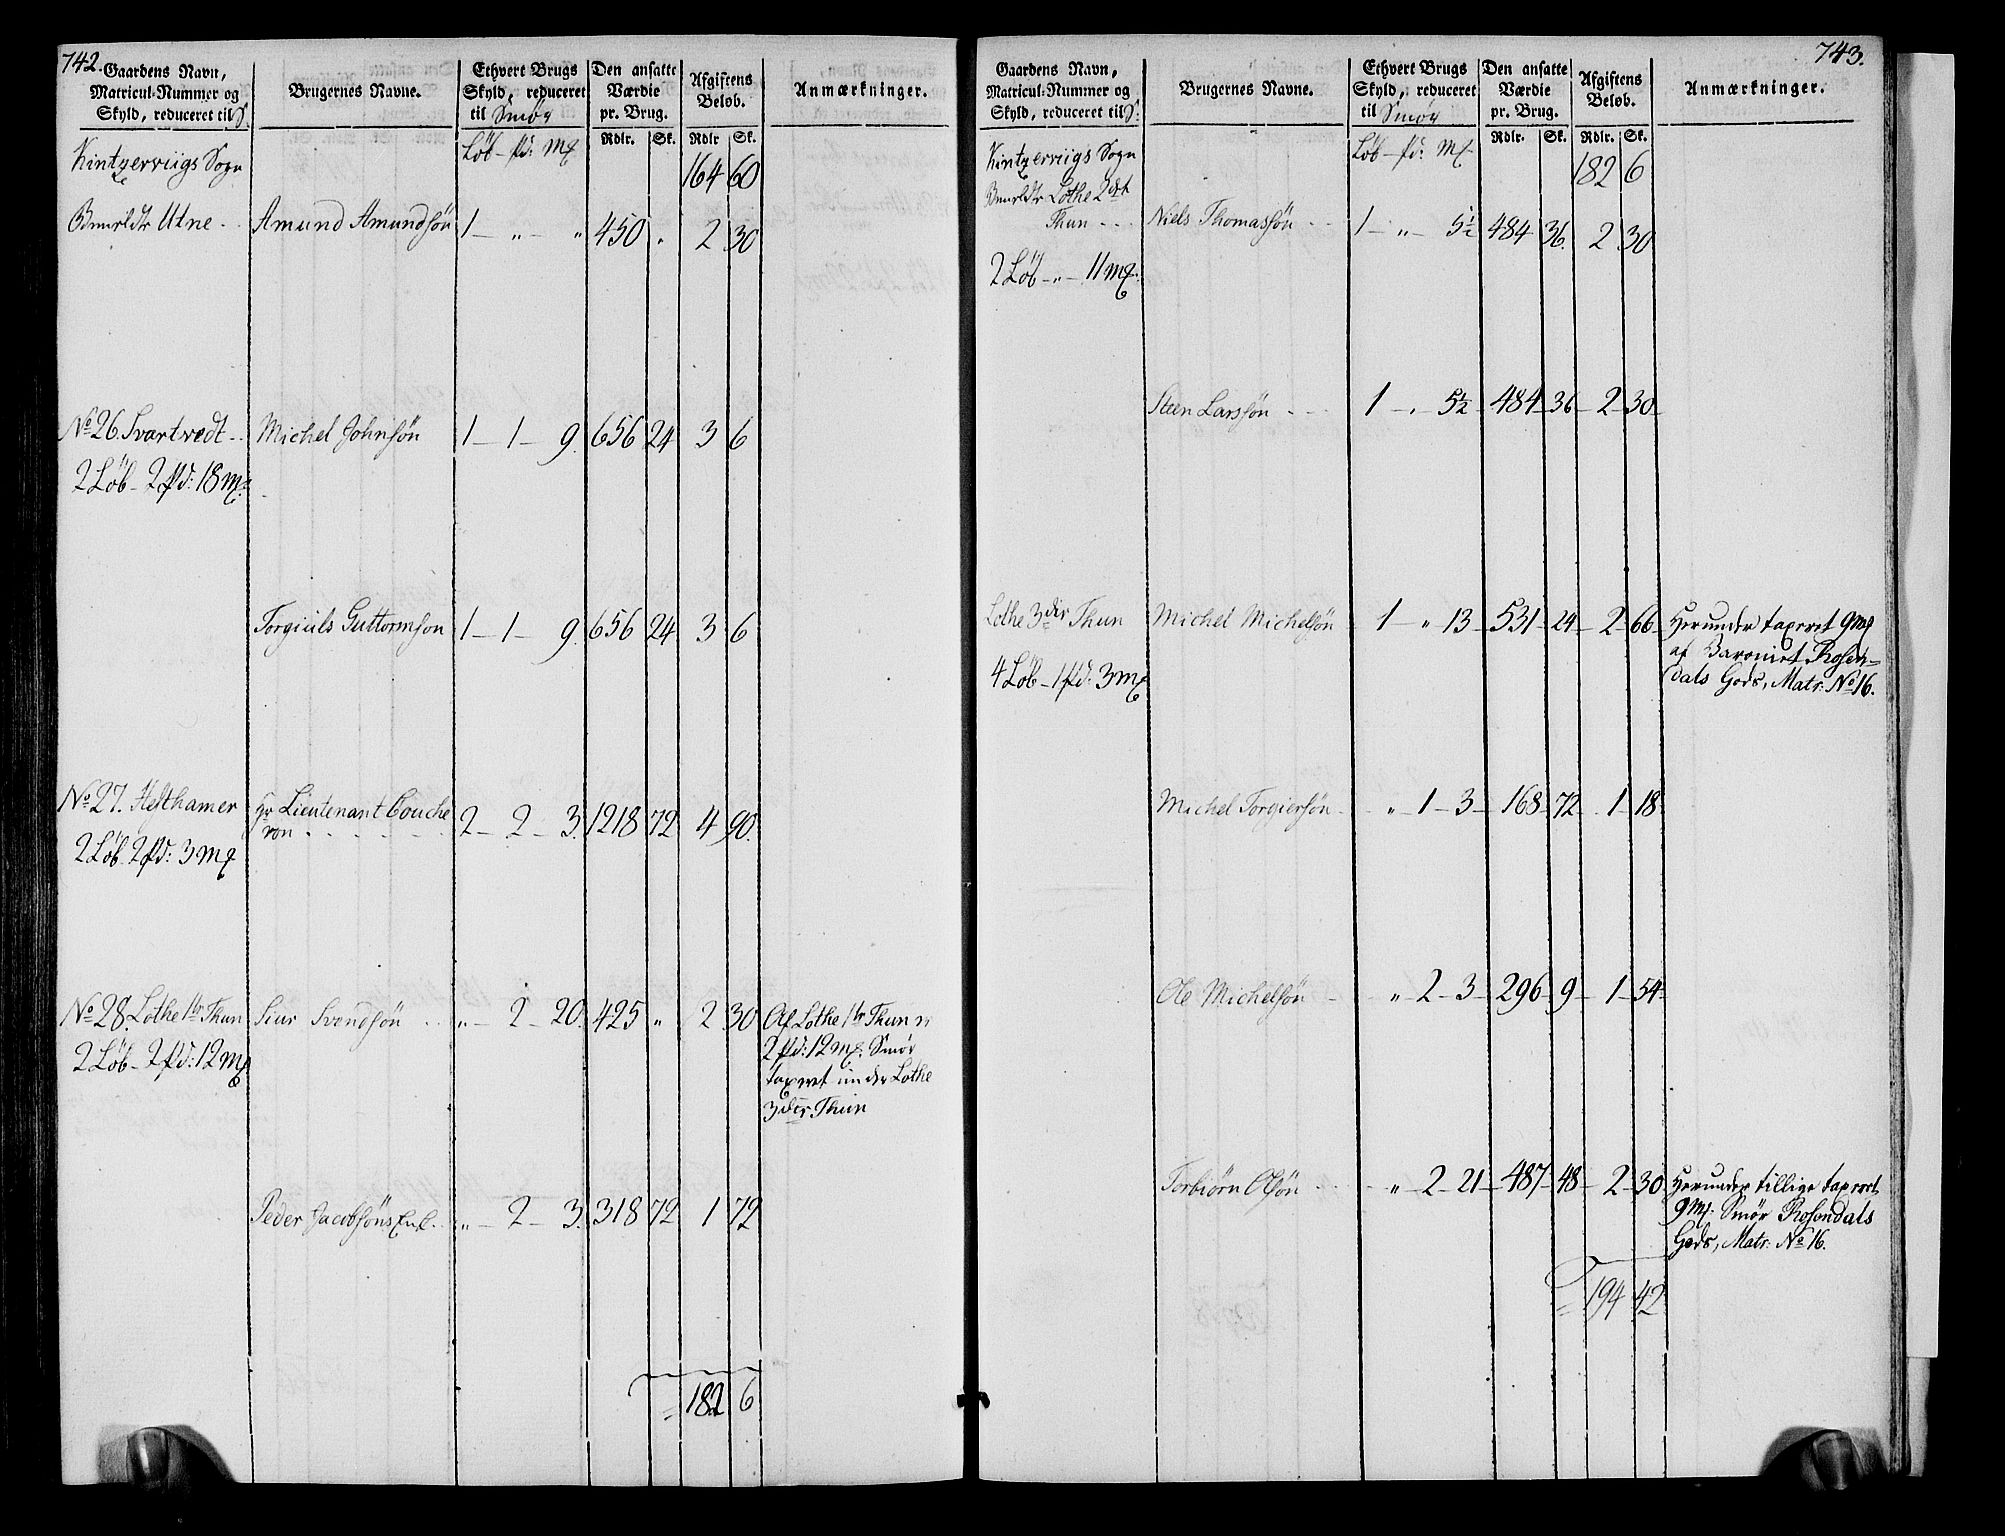 742.
Gaardens Navn, Matricul-Nummer og Skyld, reduceret til S:
Brugernes Navne.
Ethvert Brugs Skyld, reduceret til Smør
Den ansatte Værdie pr. Brug.
Afgiftens Beløb.
Anmærkninger.
Rdlr. Sk. Rdlr Sk.
Kintzerviigs Sogn Løb - pd: Mk 164 60
Utne - Amund Amundsøn 1 - „ - „ 450 „ 2 30
No 26. Svartvedt - Michel Johnsøn 1 - 1 - 9. 656 24 3 6
2 Løb - 2 pd: 18 Mk:
Torgiuls Guttormson 1 - 1 - 9. 656 24 3 6
No 27. Hesthamer Hr Lieutenant Couche
ron - - - - 2 - 2 - 3. 1218 72 4 90.
2 Løb. 2 pd: 3 Mk
No 28. Lothe 1te Thun Siur Svendsøn - - „ - 2 - 20. 425 „ 2 30 Af Lothe 1te Thun er
2 Løb - 2 pd: 12 Mk 2 pd: 12 Mk: Smør
taxeret under Lothe
3der Thun
Peder Jacobsøns Enk. - „ - 2 - 3. 318 72 1 72
= 182 6
743.
Gaardens Navn, Matricul-Nummer og Skyld, reduceret til S:
Brugernes Navne.
Ethvert Brugs Skyld, reduceret til Smør
Den ansatte Værdie pr. Brug.
Afgiftens Beløb.
Anmærkninger.
Rdlr. Sk. Rdlr. Sk.
Kintzerviigs Sogn Løb - pd: Mk 182 6
Lothe 2det
Thun - - - Niels Thomassøn - - 1 - „ - 5½ 484 36. 2 30
2 Løb - „ - 11 Mk:
Steen Larssøn - - - 1 - „ - 5½ - 484 - 36 - 2 - 30
Lothe 3die Thun Michel Michelsøn 1 - „ 13 - 531 - 24 - 2 - 66 Herunder taxeret 9 Mk
4 Løb - 1 pd: 3 Mk af Baroniet Rosen=
dals Gods, Matr: No 16.
Michel Torgiersøn - „ - 1 - 3 - 168 - 72 - 1 - 18
Ole Michelsøn - „ - 2 - 3 - 296 - 9 - 1 - 54
Torbiørn Olsøn - - „ - 2 - 21 - 487 - 48 - 2 - 30 Herunder tillige taxeret
9 Mk: Smør Rosendals
Gods, Matr: No 16.
= 194 42